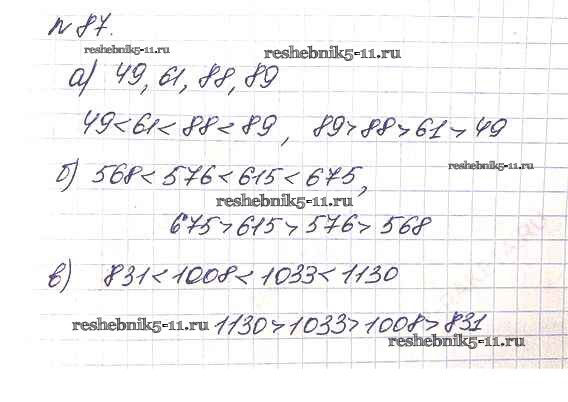 № 87.
reshebnik5-11.ru
reshebnik5-11.ru
а) 49, 61, 88, 89
49<61<88<89, 89>88>61>49
reshebnik5-11.ru
б) 568<576<615<675,
reshebnik5-11.ru
675>615>576>568
в) 831<1008<1033<1130
reshebnik5-11.ru 1130>1033>1008>831
reshebnik5-11.ru